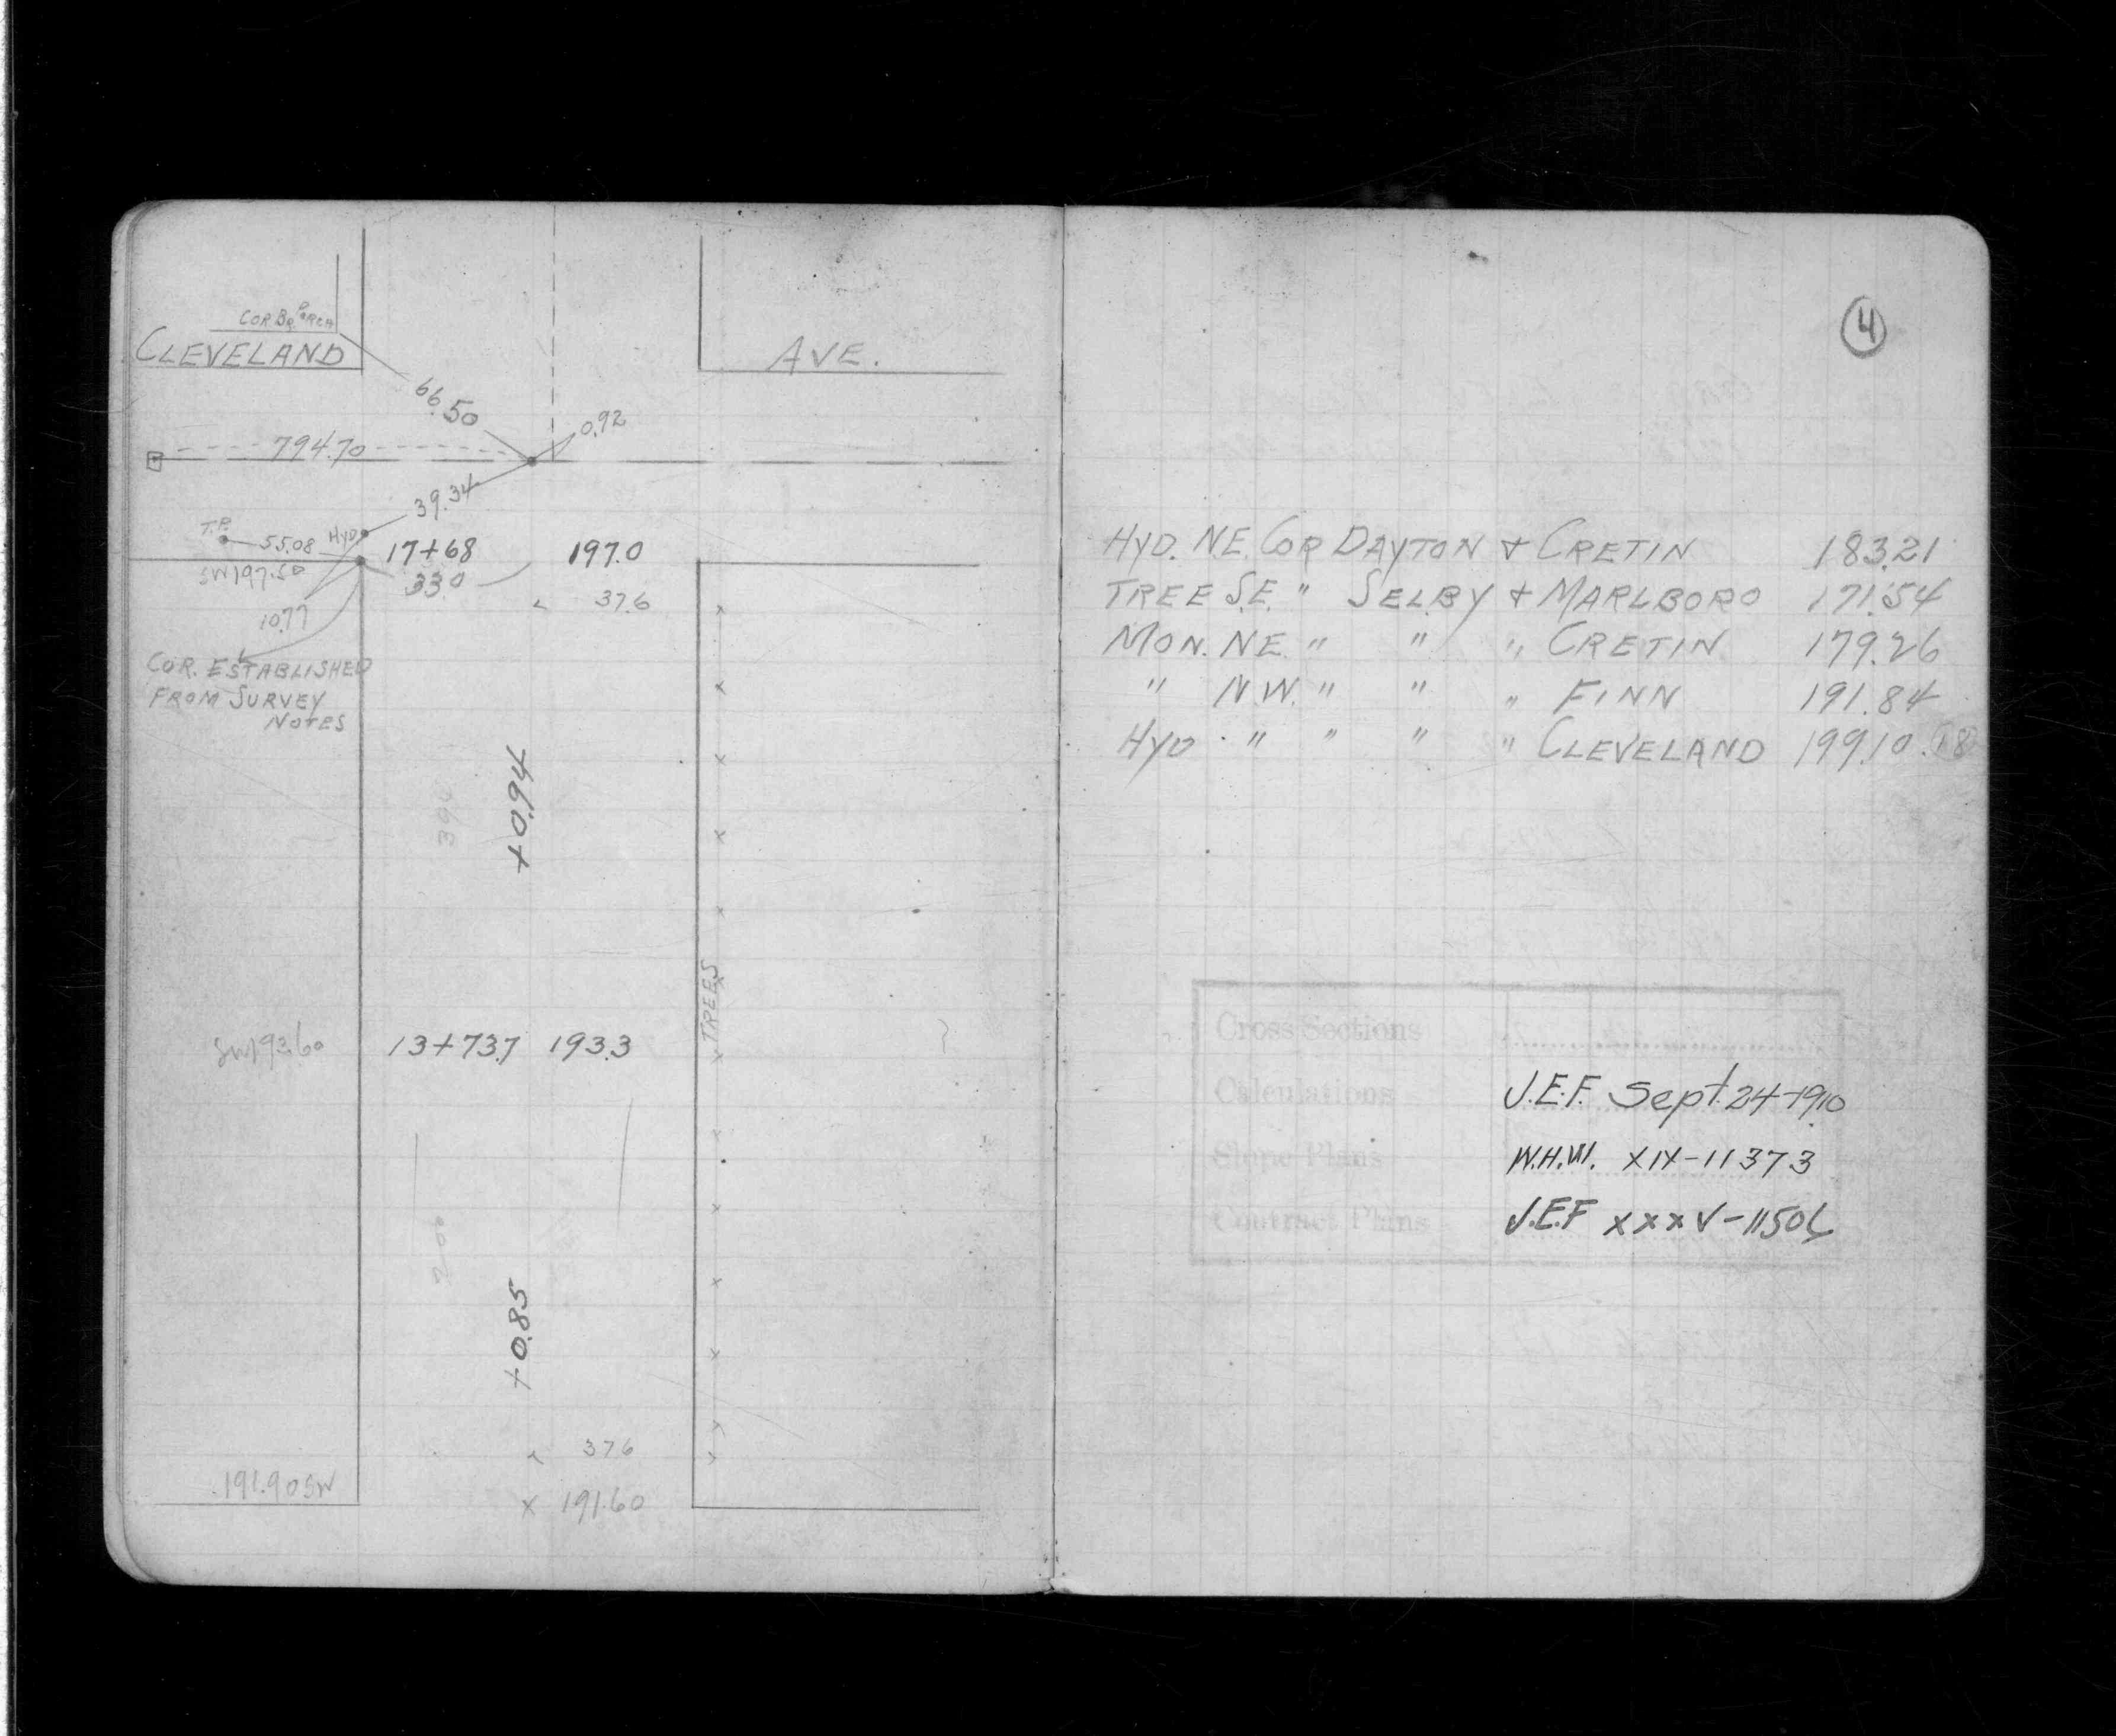 COR. BR. PORCH
CLEVELAND AVE.
66.50
0.92
794.70
39.34
T.P. 55.08 HYD 17+68 197.0
SW 197.50 33.0
37.6
10.77
COR. ESTABLISHED
FROM SURVEY
NOTES
+0.94
394
TREES
SW 193.60 13+73.7 193.3
200
+0.85
37.6
191.90 SW x 191.60
4
HYD. N.E. COR DAYTON & CRETIN 183.21
TREE S.E. " SELBY & MARLBORO 171.54
MON. N.E. " " " CRETIN 179.26
" N.W. " " " FINN 191.84
HYD " " " " CLEVELAND 199.10 .18
Cross Sections
Calculations J.E.F. Sept. 24-1910
Slope Plans W.H.W. XIX-11373
Contract Plans J.E.F XXXV-11506